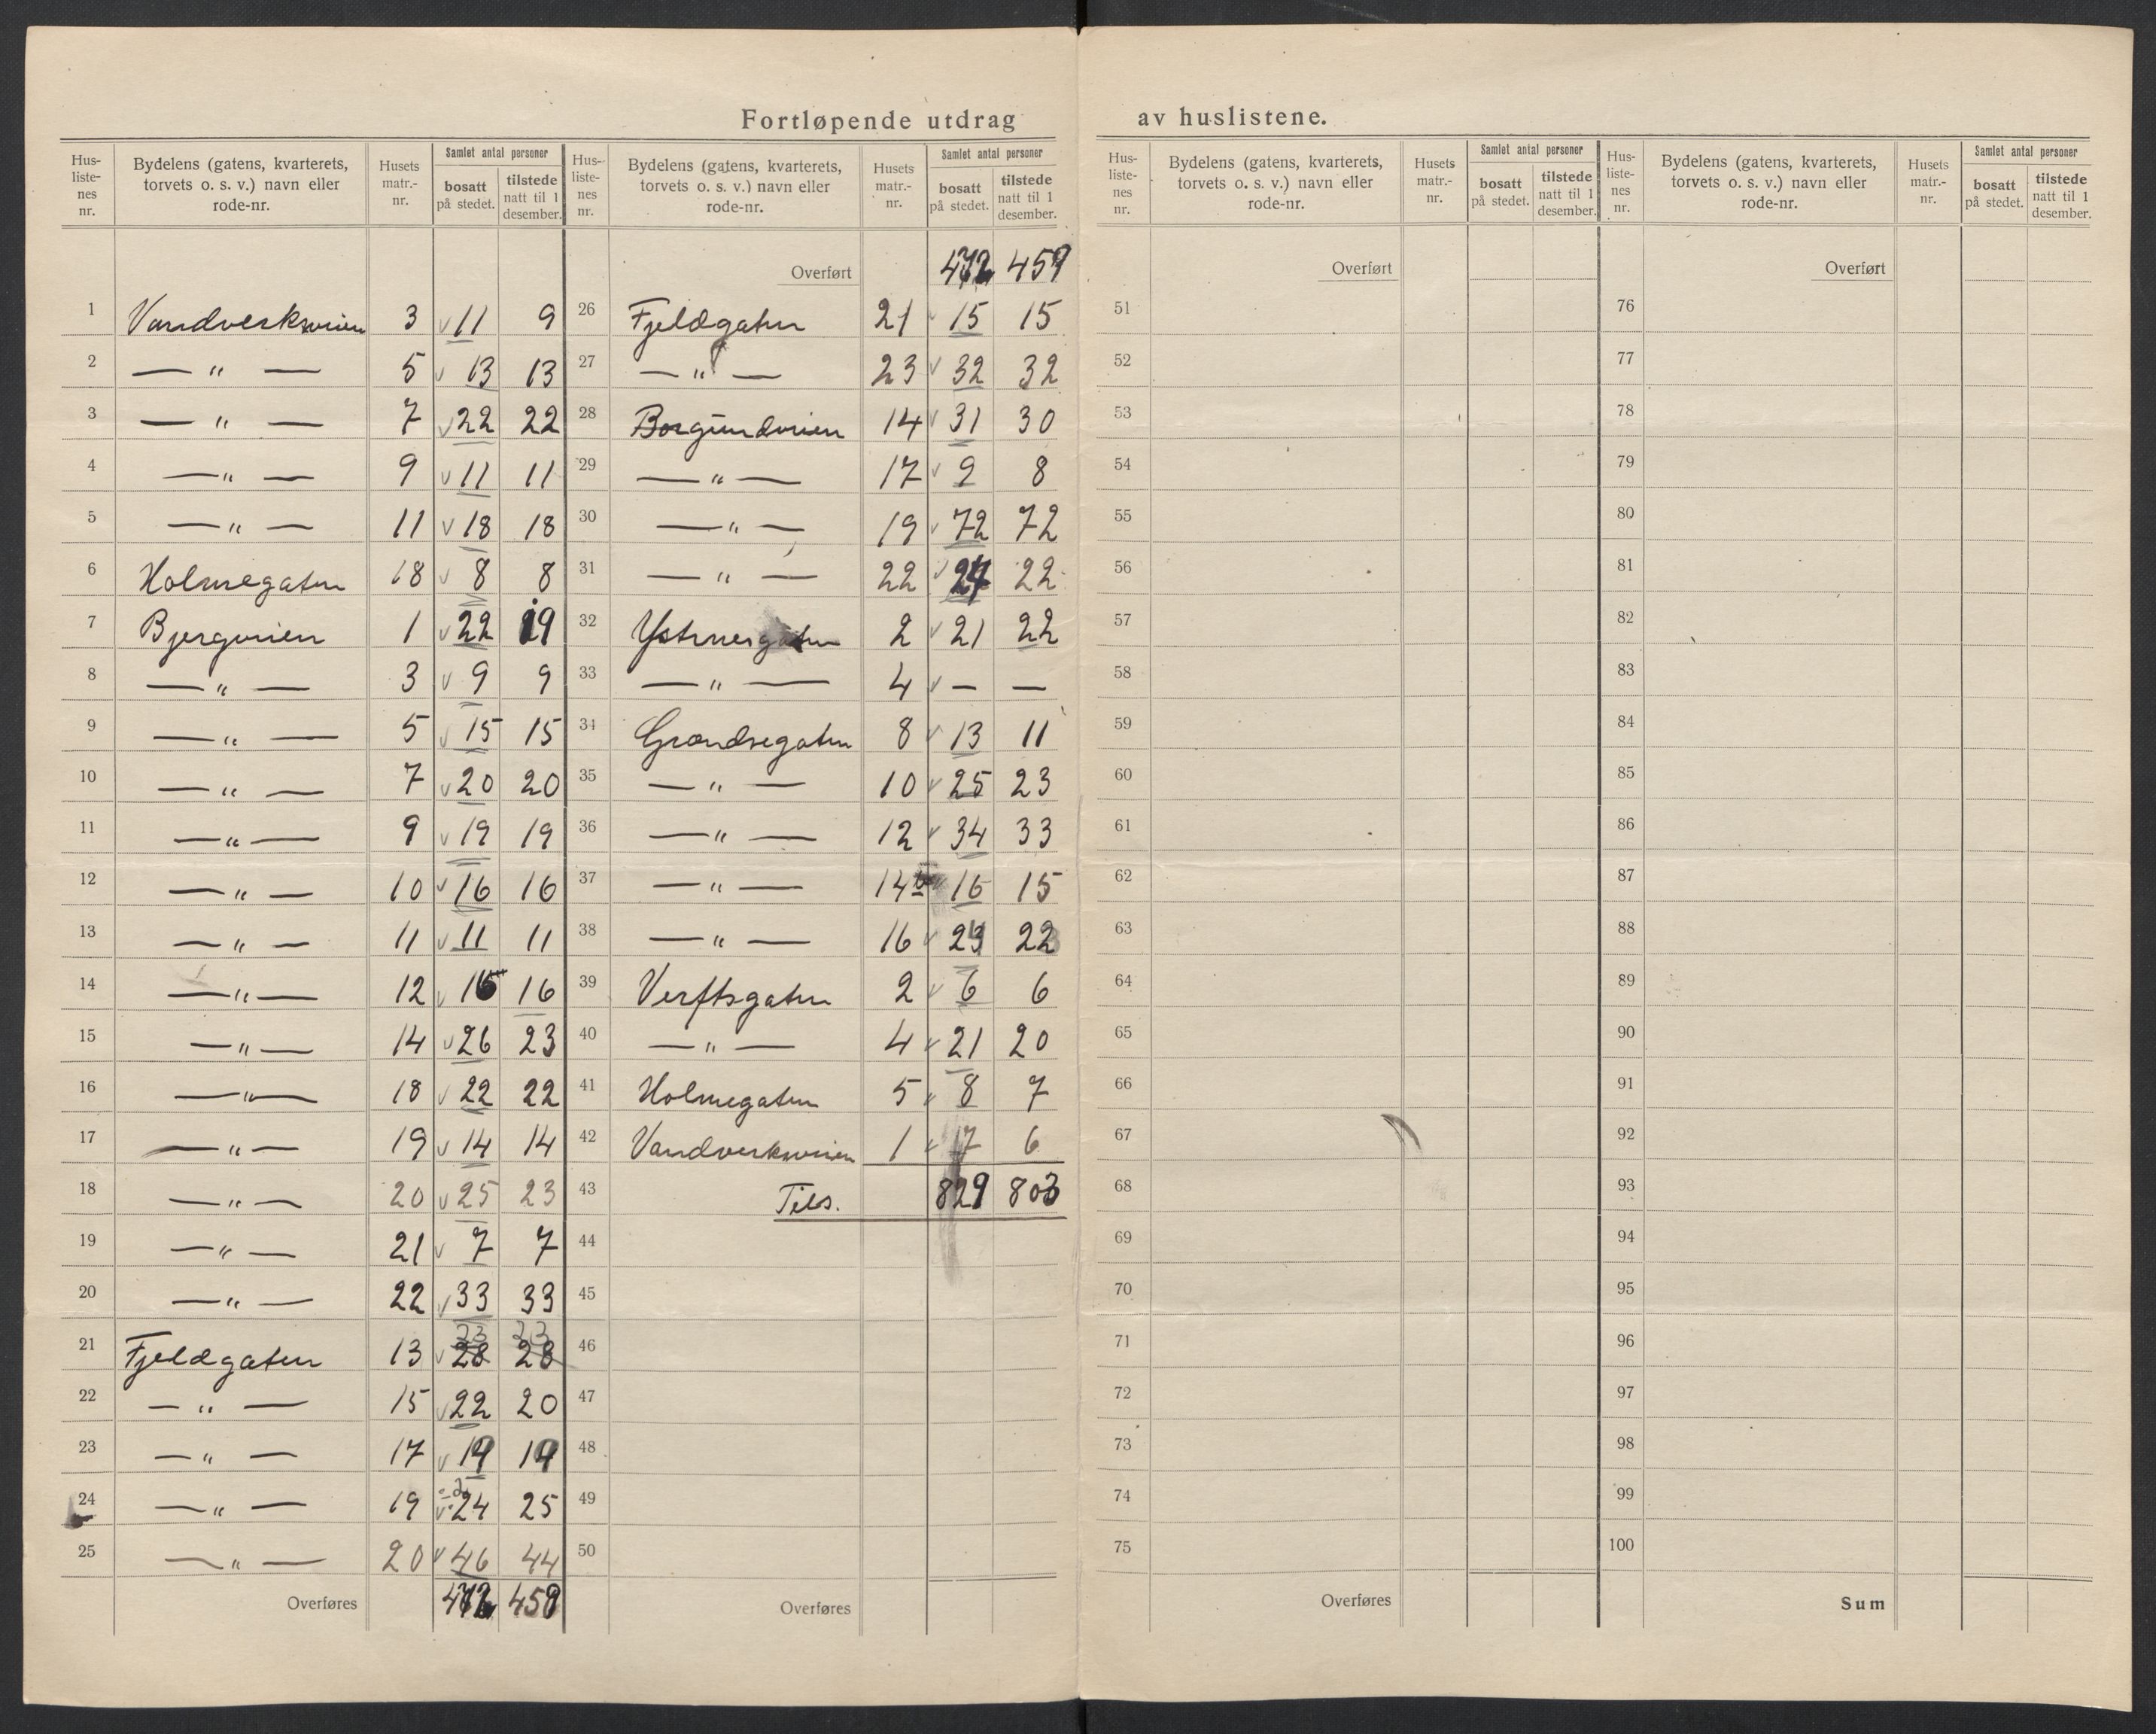 Fortløpende utdrag av huslistene.
Hus-listenes nr. | Bydelens (gatens, kvarterets, torvets o. s. v.) navn eller rode-nr. | Husets matr.-nr. | Samlet antal personer | bosatt på stedet. | tilstede natt til 1 desember.
1 Vandverksveien 3 11 9
2 — " — 5 13 13
3 — " — 7 22 22
4 — " — 9 11 11
5 — " — 11 18 18
6 Holmegaten 18 8 8
7 Bjergveien 1 22 19
8 — " — 3 9 9
9 — " — 5 15 15
10 — " — 7 20 20
11 — " — 9 19 19
12 — " — 10 16 16
13 — " — 11 11 11
14 — " — 12 16
15 — " — 14 26 23
16 — " — 18 22 22
17 — " — 19 14 14
18 — " — 20 25 23
19 — " — 21 7 7
20 — " — 22 33 33
21 Fjeldgaten 13 28 28 23 23
22 — " — 15 22 20
23 — " — 17 19 19
24 — " — 19 24 25
25 — " — 20 46 44
Overføres 472 459
Hus-listenes nr. | Bydelens (gatens, kvarterets, torvets o. s. v.) navn eller rode-nr. | Husets matr.-nr. | Samlet antal personer | bosatt på stedet. | tilstede natt til 1 desember.
Overført 472 459
26 Fjeldgaten 21 15 15
27 — " — 23 32 32
28 Borgundveien 14 31 30
29 — " — 17 9 8
30 — " — 19 72 72
31 — " — 22 24 22
32 Ystenesgaten 2 21 22
33 — " — 4 — —
34 Grændsegaten 8 13 11
35 — " — 10 25 23
36 — " — 12 34 33
37 — " — 14b 16 15
38 — " — 16 23 22
39 Verftsgaten 2 6 6
40 — " — 4 21 20
41 Holmegaten 5 8 7
42 Vandverksveien 1 7 6
43 Tils. 829 803
44
45
46
47
48
49
50
Overføres
Hus-listenes nr. | Bydelens (gatens, kvarterets, torvets o. s. v.) navn eller rode-nr. | Husets matr.-nr. | Samlet antal personer | bosatt på stedet. | tilstede natt til 1 desember.
Overført
51
52
53
54
55
56
57
58
59
60
61
62
63
64
65
66
67
68
69
70
71
72
73
74
75
Overføres
Hus-listenes nr. | Bydelens (gatens, kvarterets, torvets o. s. v.) navn eller rode-nr. | Husets matr.-nr. | Samlet antal personer | bosatt på stedet. | tilstede natt til 1 desember.
Overført
76
77
78
79
80
81
82
83
84
85
86
87
88
89
90
91
92
93
94
95
96
97
98
99
100
Sum